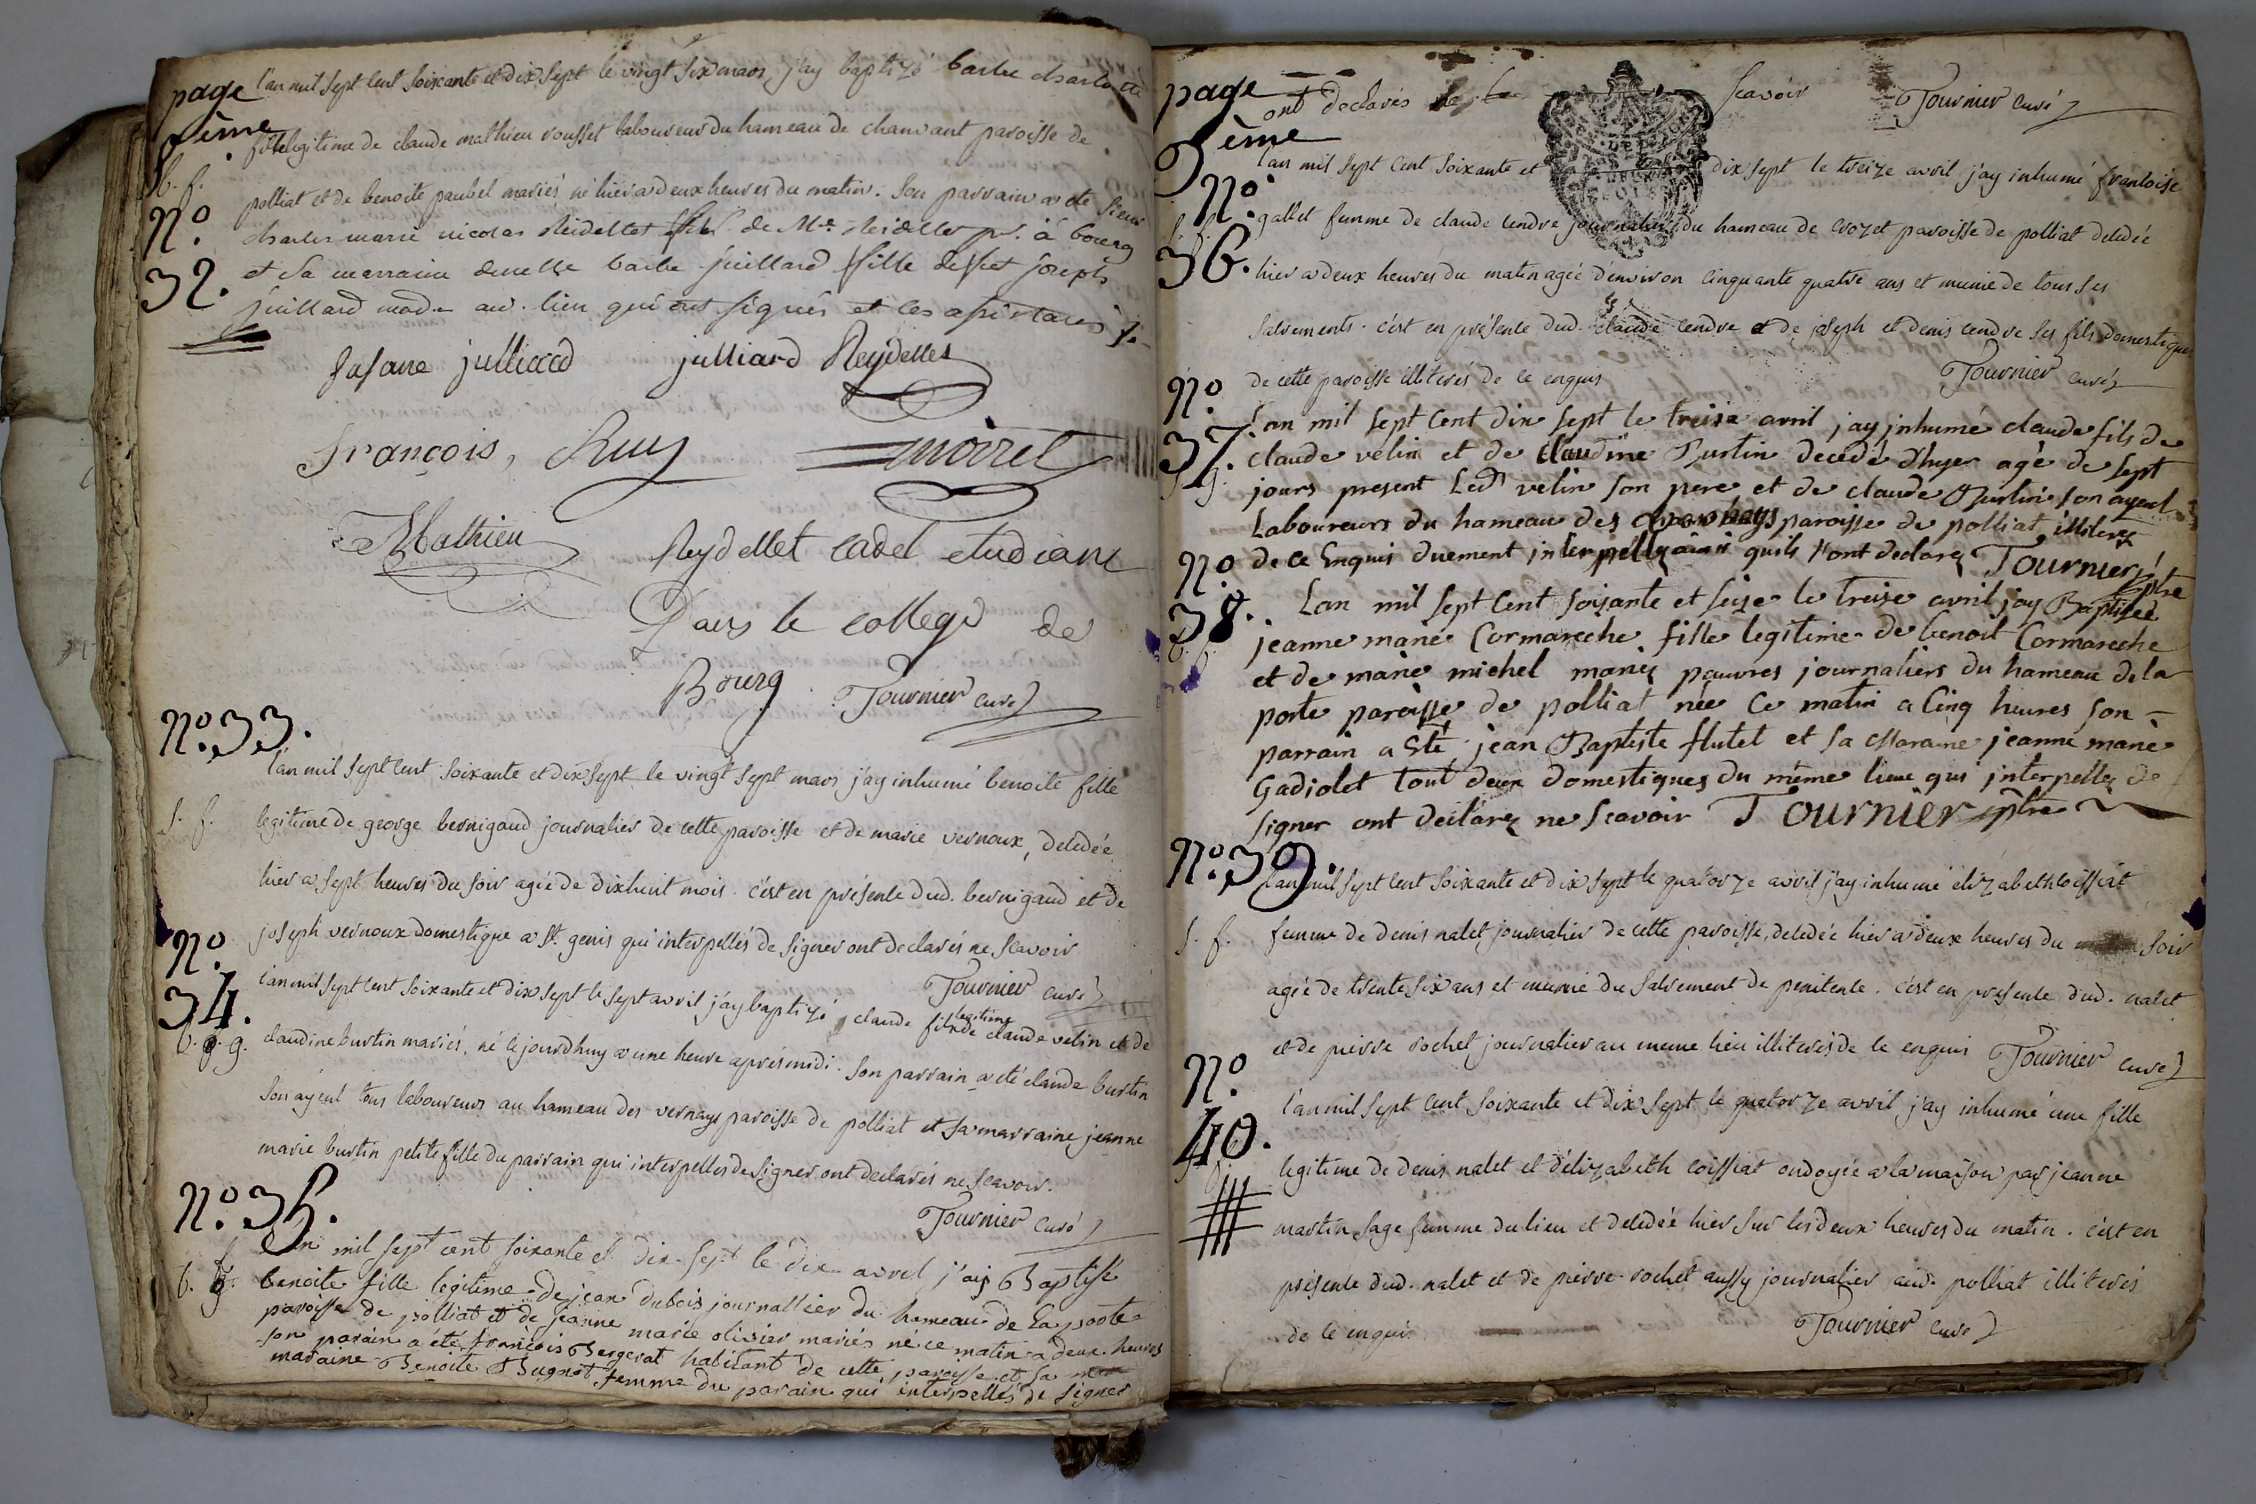 page
8ème
l'an mil sept cent soixante et dix sept le vingt six mars j'ay baptizé barbe charlotte
fille legitime de claude mathieu rousset laboureur du hameau de chanvant paroisse de
b. f.
polliat et de benoite paubel mariés né hier a deux heures du matin. son parrain a eté sieur
No
charles marie nicolas Reidellet fils de Mre Reidellet pr. à bourg
32.
et sa marraine demelle barbe juillard fille de sieur joseph
juillard md au. lieu qui ont signés et les assistants
susane julliard julliard Reydellet
François, Ruy moirel
Mathieu
Reydellet cadet etudiant
Dans le college de
Bourg. Tournier curé
No. 33.
l'an mil sept cent soixante et dix sept le vingt sept mars j'ay inhumé benoite fille
S. f.
legitime de george bernigaud journalier de cette paroisse et de marie vernoux, decedée
hier a sept heures du soir agée de dixhuit mois. c'est en présence dud. bernigaud et de
joseph vernoux domestique a St. genis qui interpellés de signer ont declarés ne scavoir
Tournier curé
No
34.
l'an mil sept cent soixante et dix sept le sept avril j'ay baptizé claude fils legitime de claude velin et de
b. g.
claudine burtin mariés, né cejourdhuy a une heure aprés midi. son parrain a eté claude burtin
son ayeul tous laboureurs au hameau des vernays paroisse de polliat et sa marraine jeanne
marie burtin petite fille du parrain qui interpellés de signer ont declarés ne scavoir.
Tournier curé
No. 35.
L'an mil sept cent soixante et dix-sept le dix avril j'ais Baptisé
b. f.
benoite fille legitime de jean dubois journallier du hameau de la porte
paroisse de polliat et de jeanne marie olivier mariés né ce matin a deux heures
son parain a été françois Bergerat habitant de cette paroisse et sa
maraine Benoite Bugnot femme du parain qui interpellés de signer
page
9ème
ont declarés ne scavoir Tournier curé
No.
l'an mil sept cent soixante et dix sept le treize avril j'ay inhumé francoise
S. f.
gallet femme de claude cendre journalier du hameau de crozet paroisse de polliat decedée
36.
hier a deux heures du matin agée d'environ cinquante quatre ans et munie de tous ses
sacrements. c'est en présence dud. claude cendre et de joseph et denis cendre ses fils domestiques
de cette paroisse illiterés de ce enquis Tournier curé
No
37.
L'an mil sept cent dix sept le treize avril jay jnhumé claude fils de
claude velin et de claudine Burtin decedé d'hyer agé de sept
S. g.
jours present Led velin son pere et de claude Burtin son ayeul
Laboureurs du hameau des vernays paroisse de polliat illiterez
de ce Enquis duement interpellez ainsi quils l'ont declarez Tournier ptre
No
38.
Lan mil sept cent soixante et seize le treize avril jay Baptizée
b. f.
jeanne marie Cormareche fille legitime de benoit Cormareche
et de marie michel mariez pauvres journaliers du hameau de la
porte paroisse de polliat née ce matin a Cinq heures son
parrain a Eté jean Baptiste flutet et sa Maraine jeanne marie
Gadiolet tout deux domestiques du même lieu qui jnterpellez de
signer ont declarez ne scavoir Tournier ptre
No. 39.
l'an mil sept cent soixante et dix sept le quatorze avril j'ay inhumé elizabeth coissiat
S. f.
femme de denis nalet journalier de cette paroisse, decedée hier a deux heures du soir
agée de trente six ans et munie du sacrement de penitence. c'est en présence dud. nalet
et de pierre rochet journalier au meme lieu illiterés de ce enquis Tournier curé
No
40.
l'an mil sept cent soixante et dix sept le quatorze avril j'ay inhumé une fille
legitime de denis nalet et d'élizabeth coissiat ondoyée a la maison par jeanne
martin sage femme du lieu et decedée hier sur les deux heures du matin. c'est en
présence dud. nalet et de pierre rochet aussy journalier aud. polliat illiterés
de ce enquis Tournier curé